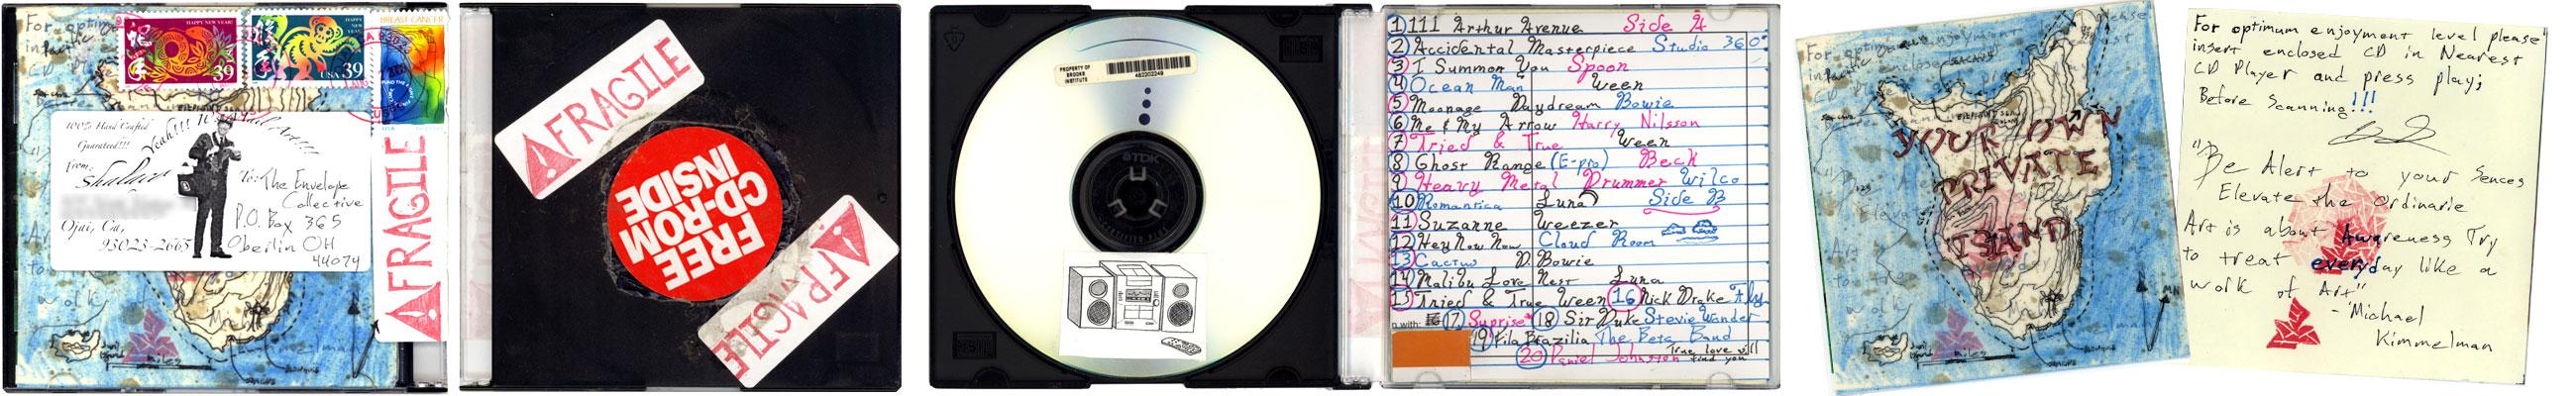 HAPPY NEW YEAR!
39
HAPPY NEW
USA 39
BREAST CANCER
100% Hand Crafted
Guaranteed!!!
Yeah!!! It's Mail Art!!!
From:
Shalaco
Ojai, Ca,
93023-2665
To: The Envelope
Collective
P.O. Box 365
Oberlin OH
44074
FRAGILE
miles
FRAGILE
FREE
CD-ROM
INSIDE
FRAGILE
PROPERTY OF
BROOKS
INSTITUTE
TDK
1 111 Arthur Avenue Side A
2 Accidental Masterpiece Studio 360°
3 I Summon You Spoon
4 Ocean Man Ween
5 Moonage Daydream Bowie
6 Me & My Arrow Harry Nilsson
7 Tried & True Ween
8 Ghost Range (E-pro) Beck
9 Heavy Metal Drummer Wilco
10 Romantica Luna Side B
11 Suzanne Weezer
12 Hey Now Now Cloud Room
13 Cactus D. Bowie
14 Malibu Love Nest Luna
15 Tried & True Ween 16 Nick Drake Fly
17 Suprise 18 Sir Duke Stevie Wonder
19 Fila Brazilia The Beta Band
20 Daniel Johnston True love will find you
YOUR OWN
PRIVATE
ISLAND
MN
For optimum enjoyment level please
insert enclosed CD in Nearest
CD Player and press play;
Before Scanning!!!
"Be Alert to your Sences
Elevate the Ordinarie
Art is about Awareness Try
to treat everyday like a
work of Art"
- Michael
Kimmelman